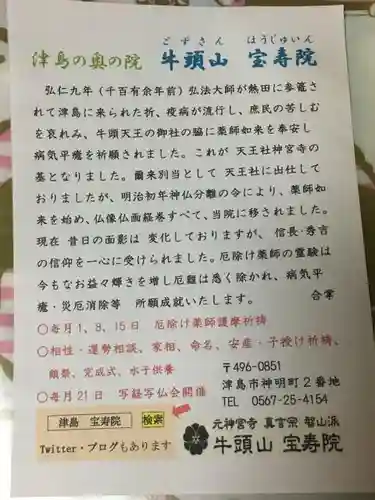 ごずさん ほうじゅいん
津島の奥の院 牛頭山 宝寿院
弘仁九年（千百有余年前）弘法大師が熱田に参籠さ
れて津島に来られた折、疫病が流行し、庶民の苦しむ
を哀れみ、牛頭天王の御社の脇に薬師如来を奉安し
病気平癒を祈願されました。これが 天王社神宮寺の
基となりました。爾来別当として 天王社に出仕して
おりましたが、明治初年神仏分離の令により、薬師如
来を始め、仏像仏画経巻すべて、当院に移されました。
現在 昔日の面影は 変化しておりますが、信長・秀吉
の信仰を一心に受けられました。厄除け薬師の霊験は
今もなお益々輝きを増し厄難は悉く除かれ、病気平
癒・災厄消除等 所願成就いたします。 合掌
○毎月1、8、15日 厄除け薬師護摩祈祷
○相性・運勢相談、家相、命名、安産・子授け祈祷、
願祭、完成式、水子供養
○毎月21日 写経写仏会開催
〒496-0851
津島市神明町2番地
TEL 0567-25-4154
津島 宝寿院 検索
Twitter・ブログもあります
元神宮寺 真言宗 智山派
牛頭山 宝寿院